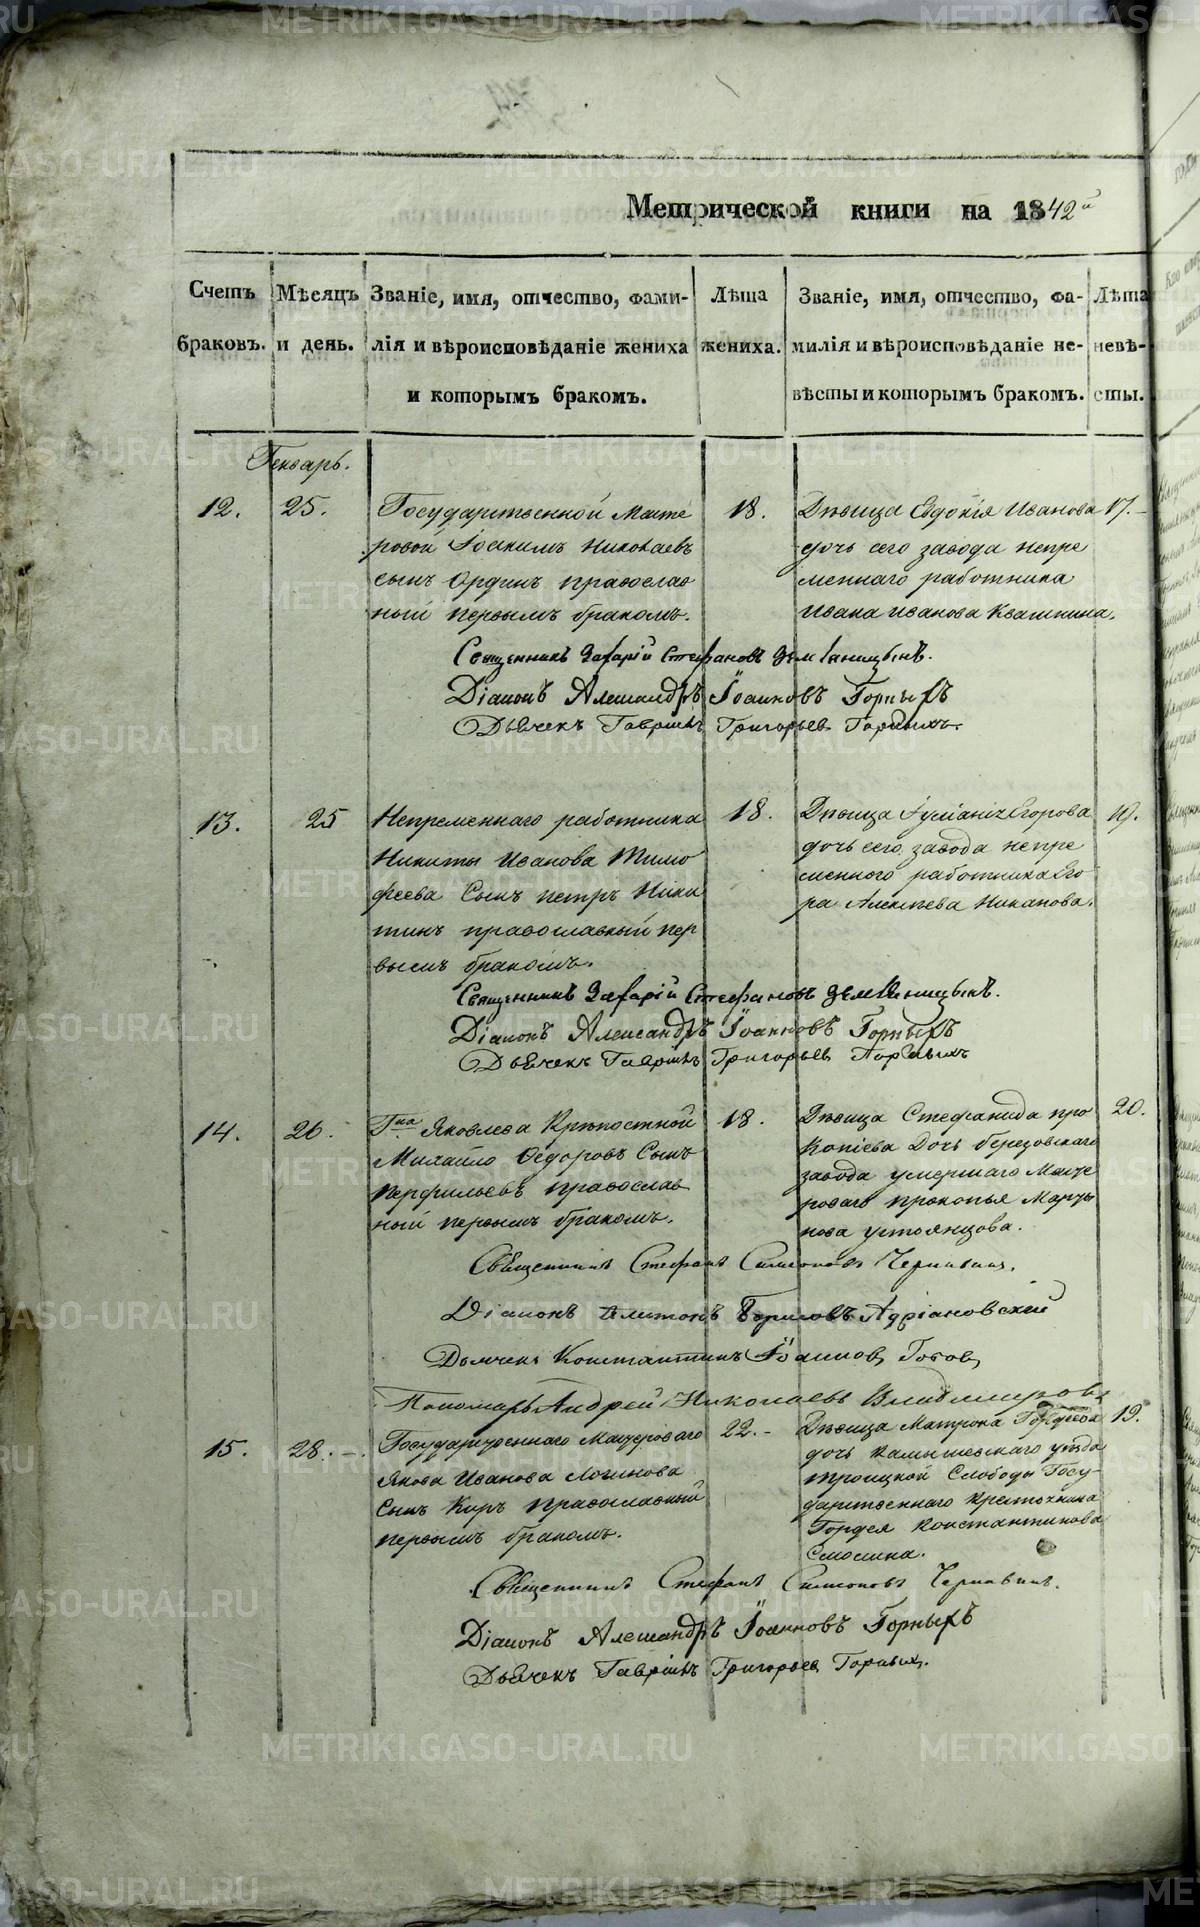 Метрической книги на 1842й
Счетъ браковъ.
Мѣсяцъ и день.
Званіе, имя, отчество, фами-
лія и вѣроисповѣданіе жениха
и которымъ бракомъ.
Лѣта
жениха.
Званіе, имя, отчество, фа-
милія и вѣроисповѣданіе не-
вѣсты и которымъ бракомъ.
Лѣта
невѣ-
сты.
Генварь.
12. 25.
Государственной масте
ровой Іоакимъ Николаевъ
сынъ Ординъ православ
ный первымъ бракомъ.
18.
Дѣвица Евдокія Иванова
дочь сего завода непре
меннаго работника
Ивана Иванова Квашнина.
17.
Священникъ Захарій Стефановъ Земляницынъ.
Діаконъ Александръ Іоанновъ Горныхъ
Дьячекъ Гавріилъ Григорьевъ Горныхъ.
13. 25
Непременнаго работника
Никиты Иванова Тимо
феева Сынъ петръ Ники
тинъ православный пер
вымъ бракомъ.
18.
Дѣвица Егорова
дочь сего завода непре
меннаго работника Его
ра Алексѣева Никанова.
19.
Священникъ Захарій Стефановъ Земляницынъ.
Діаконъ Александръ Іоанновъ Горныхъ
Дьячекъ Гавріилъ Григорьевъ Горныхъ
14. 26.
Гна Яковлева Крѣпостной
Михайло Федоровъ Сынъ
Перфильевъ православ
ный первымъ бракомъ.
18.
Дѣвица Стефанида про
копіева Дочь березовскаго
завода умершаго Масте
роваго прокопья Марты
нова устьянцова.
20.
Священникъ Стефанъ Симоновъ Чернавинъ.
Діаконъ Борисовъ Адріановскій
Дьячекъ Константинъ Іоанновъ
Пономарь Андрей Николаевъ Владимировъ
15. 28.
Государственнаго Мастероваго
Якова Иванова Логинова
Сынъ Киръ православный
первымъ бракомъ.
22.
Дѣвица Матрона Гордѣева
дочь Камышевскаго уѣзда
троицкой Слободы Госу-
дарственнаго крестьянина
Гордея Константинова
Смолина.
19.
Священникъ Стефанъ Симоновъ Чернавинъ.
Діаконъ Александръ Іоанновъ Горныхъ
Дьячекъ Гавріилъ Григорьевъ Горныхъ.
METRIKI.GASO-URAL.RU